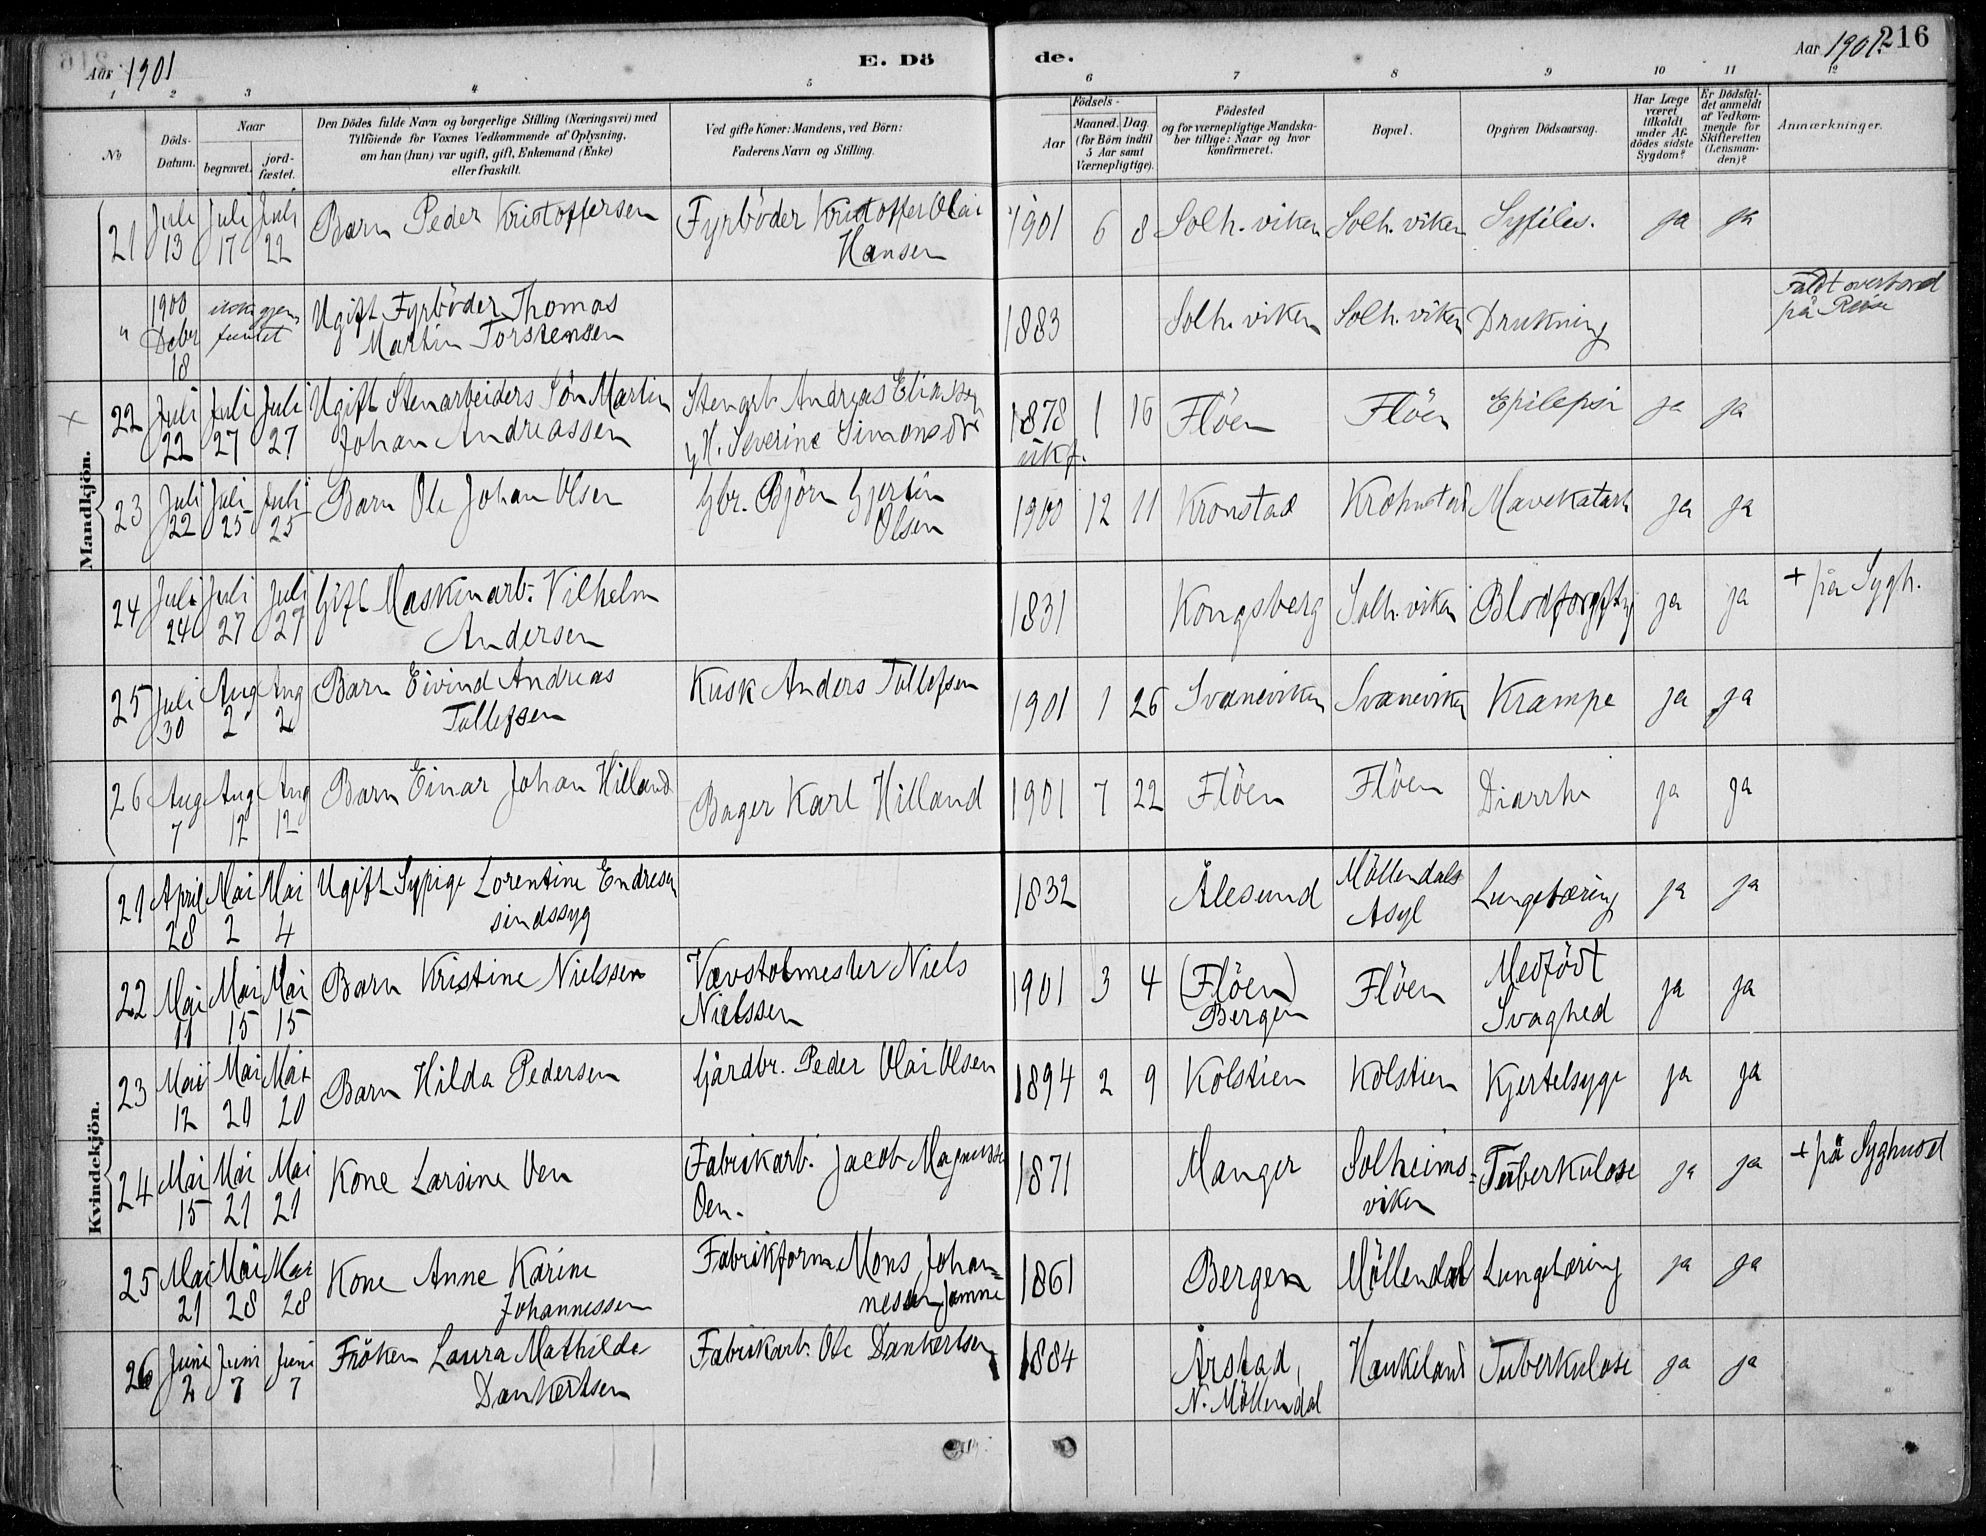 Aar 1901 E. Dö de. Aar 1901. 216
1 2 3 4 5 6 7 8 9 10 11 12
№ Döds-Datum. Naar begravet. jordfæstet. Den Dödes fulde Navn og borgerlige Stilling (Næringsvei) med Tilföiende for Voxnes Vedkommende af Oplysning, om han (hun) var ugift, gift, Enkemand (Enke) eller fraskilt. Ved gifte Koner: Mandens, ved Börn: Faderens Navn og Stilling. Födsels- Aar Maaned. Dag (for Börn indtil 5 Aar samt Værnepligtige). Födested og for værnepligtige Mandskaber tillige: Naar og hvor konfirmeret. Bopæl. Opgiven Dödsaarsag. Har Læge været tilkaldt under Afdödes sidste Sygdom? Er Dödsfaldet anmeldt af Vedkommende for Skifteretten (Lensmanden)? Anmærkninger.
Mandkjön.
21 Juli 13 Juli 17 Juli 22 Barn Peder Kristoffersen Fyrböder Kristoffer Olai Hansen 1901 6 8 Solh. viken Solh. viken Syfiles. ja ja
" 1900 Debr 18 ikke gjenfundet Ugift Fyrböder Thomas Martin Torstensen 1883 Solh. viken Solh. viken Drukning Faldt overbord på Reise
x 22 Juli 22 Juli 27 Juli 27 Ugift Stenarbeiders Sön Martin Johan Andreassen Stenarb. Andreas Eliassen H. Severine Simonsdtr 1878 1 16 ukf. Flöen Flöen Epilepsi ja ja
23 Juli 22 Juli 25 Juli 25 Barn Ole Johan Olsen Gbr. Björn Gjertin Olsen 1900 12 11 Kronstad Krohnstad Mavekatarh ja ja
24 Juli 24 Juli 27 Juli 27 Gift Maskinarb. Vilhelm Andersen 1831 Kongsberg Solh. viken Blodforgiftng ja ja + på Sygh.
25 Juli 30 Aug 2 Aug 2 Barn Eivind Andreas Tollefsen Kusk Anders Tollefsen 1901 1 26 Svaneviken Svaneviken Krampe ja ja
26 Aug 7 Aug 12 Aug 12 Barn Einar Johan Hilland Bager Karl Hilland 1901 7 22 Flöen Flöen Diarrhe ja ja
Kvindekjön.
21 April 28 Mai 2 Mai 4 Ugift Sypige Lorentine Endresen sindssyg 1832 Ålesund Möllendals Asyl Lungetæring ja ja
22 Mai 11 Mai 15 Mai 15 Barn Kristine Nielssen Vævstolmester Niels Nielssen 1901 3 4 (Flöen) Bergen Flöen Medfödt Svaghed ja ja
23 Mai 12 Mai 20 Mai 20 Barn Hilda Pedersen Gårdbr. Peder Olai Olsen 1894 2 9 Kolstien Kolstien Kjertelsyge ja ja
24 Mai 15 Mai 21 Mai 21 Kone Larsine Oen Fabrikarb. Jacob Magnussen Oen. 1871 Manger Solheims= viken Tuberkulose ja ja + på Syghuset
25 Mai 21 Mai 28 Mai 28 Kone Anne Karine Johannessen Fabrikform. Mons Johan= nessen 1861 Bergen Möllendal Lungetæring ja ja
26 Juni 2 Juni 7 Juni 7 Fröken Laura Mathilde Dankertsen Fabrikarb. Ole Dankertsen 1884 Årstad, N. Möllendal Haukeland Tuberkulose ja ja